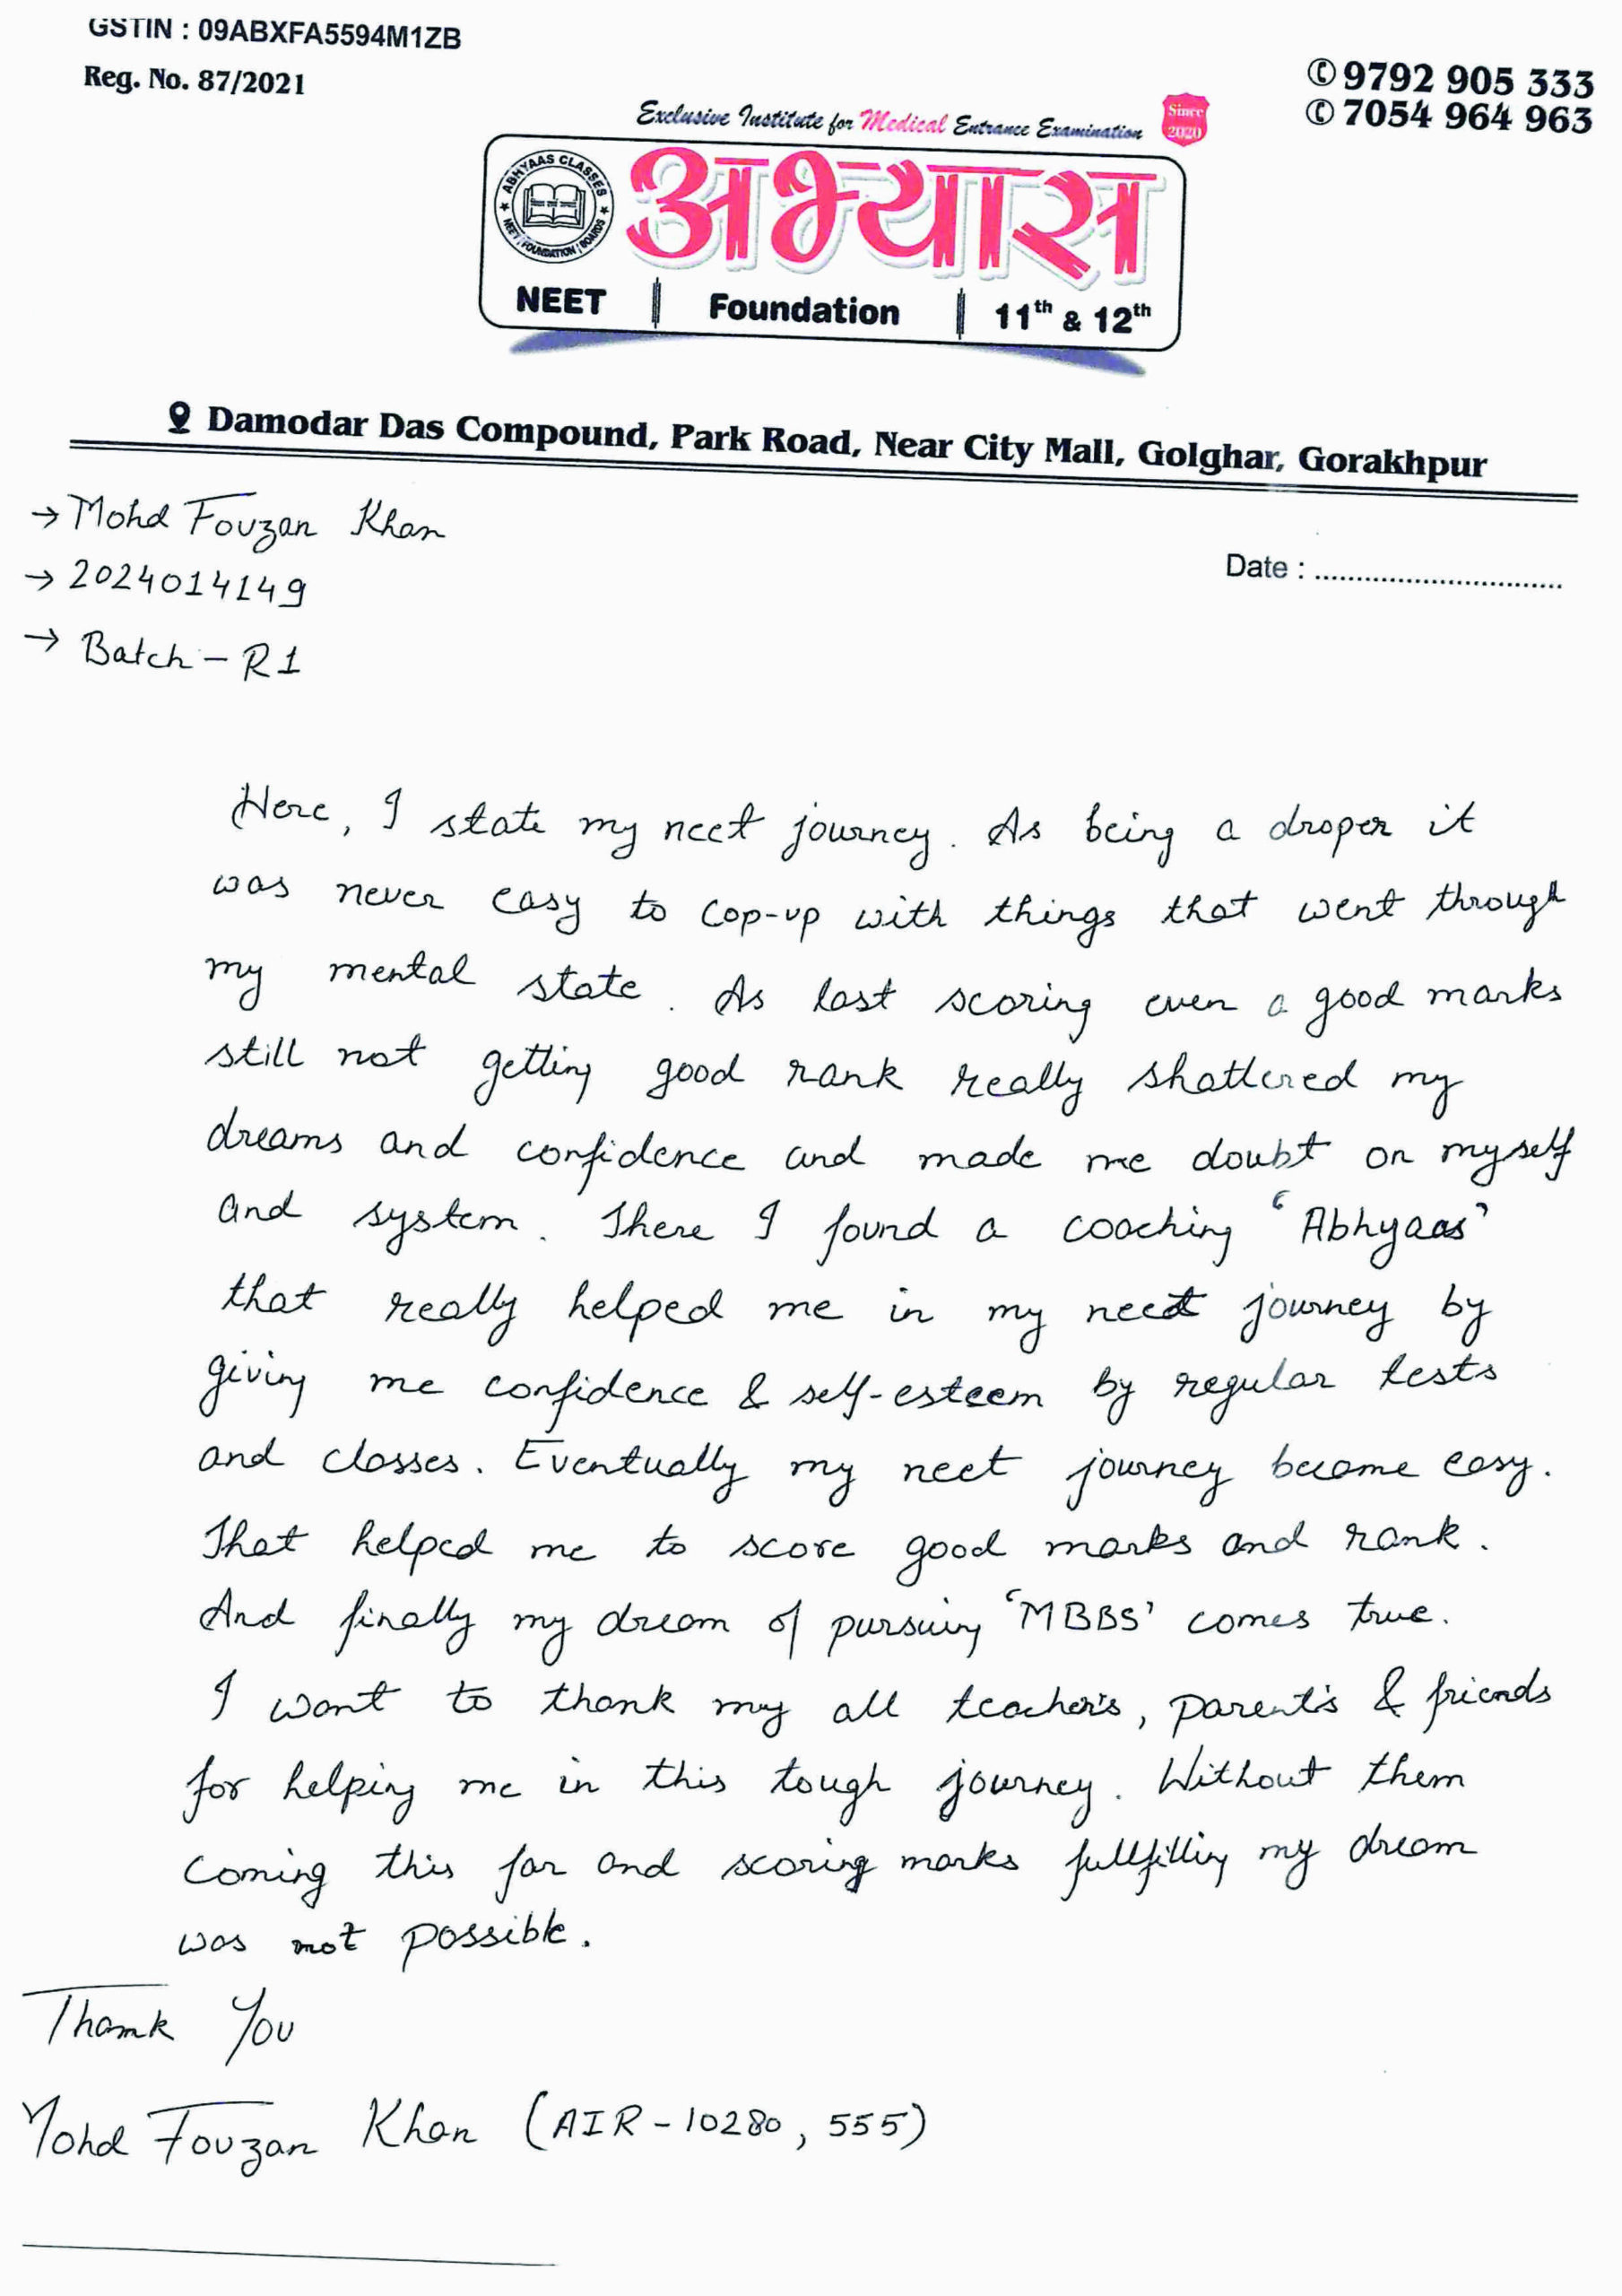 GSTIN : 09ABXFA5594M1ZB
Reg. No. 87/2021
✆ 9792 905 333
✆ 7054 964 963
Exclusive Institute for Medical Entrance Examination
Since 2020
ABHYAAS CLASSES
NEET | FOUNDATION | BOARDS
अभ्यास
NEET | Foundation | 11th & 12th
Damodar Das Compound, Park Road, Near City Mall, Golghar, Gorakhpur
→ Mohd Fouzan Khan
Date : ..............................
→ 2024014149
→ Batch - R1
Here, I state my neet journey. As being a droper it
was never easy to cop-up with things that went through
my mental state. As last scoring even a good marks
still not getting good rank really shattered my
dreams and confidence and made me doubt on myself
and system. There I found a coaching ‘Abhyaas’
that really helped me in my neet journey by
giving me confidence & self-esteem by regular tests
and classes. Eventually my neet journey became easy.
That helped me to score good marks and rank.
And finally my dream of pursuing ‘MBBS’ comes true.
I want to thank my all teacher's, parent's & friends
for helping me in this tough journey. Without them
coming this far and scoring marks fullfilling my dream
was not possible.
Thank You
Mohd Fouzan Khan (AIR - 10280, 555)